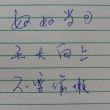 好好学习
天天向上
不要偷懒